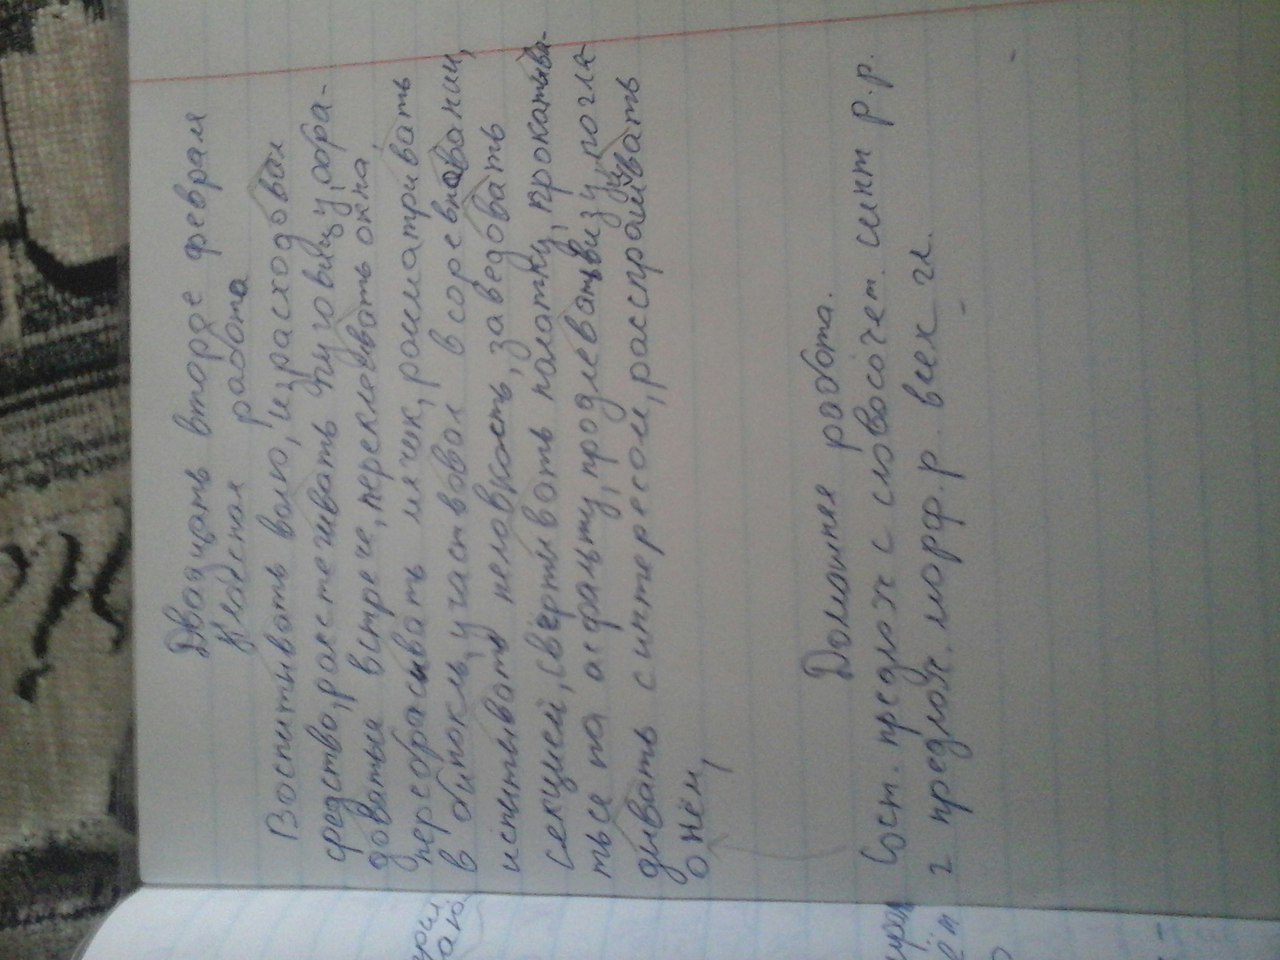 Двадцать второе февраля
Классная работа
Воспитывать волю, израсходовал
средство, расстегивать пуговицу, обра-
доваться встрече, переклеивать окна,
перебрасывать мячик, рассматривать
в бинокль, участвовал в соревновании,
испытывать неловкость, заведовать
секцией, свёртывать палатку, прокатыва-
ться по асфальту, продлевать визу, погла-
дывать с интересом, расспрашивать
о нём,
Домашняя работа.
Сост. предлож с словосочет. синт р.р.
2 предлож. морф. р. всех г.